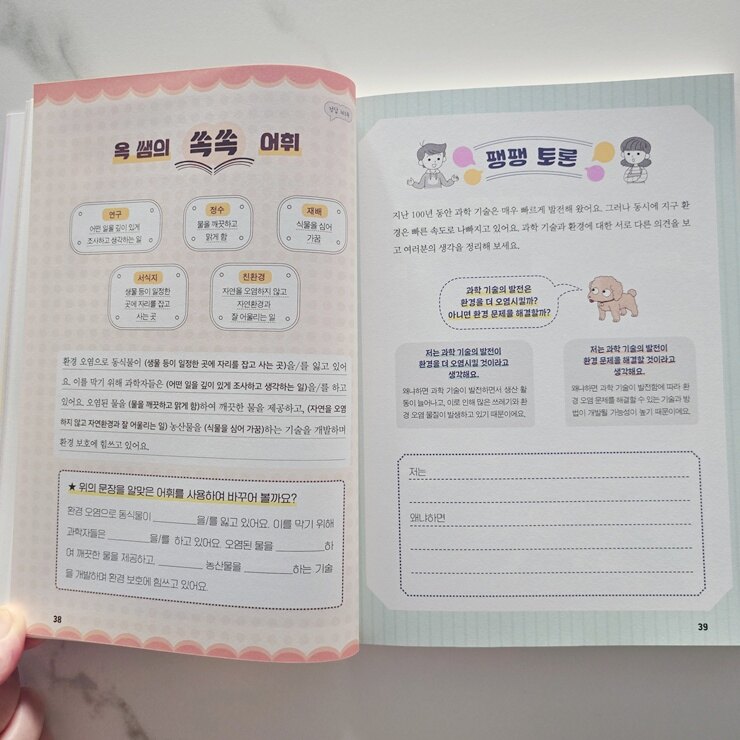 옥 쌤의 쏙쏙 어휘
연구
어떤 일을 깊이 있게
조사하고 생각하는 일
정수
물을 깨끗하고
맑게 함
재배
식물을 심어
가꿈
서식지
생물 등이 일정한
곳에 자리를 잡고
사는 곳
친환경
자연을 오염하지 않고
자연환경과
잘 어울리는 일
환경 오염으로 동식물이 (생물 등이 일정한 곳에 자리를 잡고 사는 곳)을/를 잃고 있어
요. 이를 막기 위해 과학자들은 (어떤 일을 깊이 있게 조사하고 생각하는 일)을/를 하고
있어요. 오염된 물을 (물을 깨끗하고 맑게 함)하여 깨끗한 물을 제공하고, (자연을 오염
하지 않고 자연환경과 잘 어울리는 일) 농산물을 (식물을 심어 가꿈)하는 기술을 개발하며
환경 보호에 힘쓰고 있어요.
★ 위의 문장을 알맞은 어휘를 사용하여 바꾸어 볼까요?
환경 오염으로 동식물이 ________을/를 잃고 있어요. 이를 막기 위해
과학자들은 ________을/를 하고 있어요. 오염된 물을 ________하
여 깨끗한 물을 제공하고, ________ 농산물을 ________하는 기술
을 개발하며 환경 보호에 힘쓰고 있어요.
38
팽팽 토론
지난 100년 동안 과학 기술은 매우 빠르게 발전해 왔어요. 그러나 동시에 지구 환
경은 빠른 속도로 나빠지고 있어요. 과학 기술과 환경에 대한 서로 다른 의견을 보
고 여러분의 생각을 정리해 보세요.
과학 기술의 발전은
환경을 더 오염시킬까?
아니면 환경 문제를 해결할까?
저는 과학 기술의 발전이
환경을 더 오염시킬 것이라고
생각해요.
왜냐하면 과학 기술이 발전하면서 생산 활
동이 늘어나고, 이로 인해 많은 쓰레기와 환
경 오염 물질이 발생하고 있기 때문이에요.
저는 과학 기술의 발전이
환경 문제를 해결할 것이라고
생각해요.
왜냐하면 과학 기술이 발전함에 따라 환
경 오염 문제를 해결할 수 있는 기술과 방
법이 개발될 가능성이 높기 때문이에요.
저는
왜냐하면
39